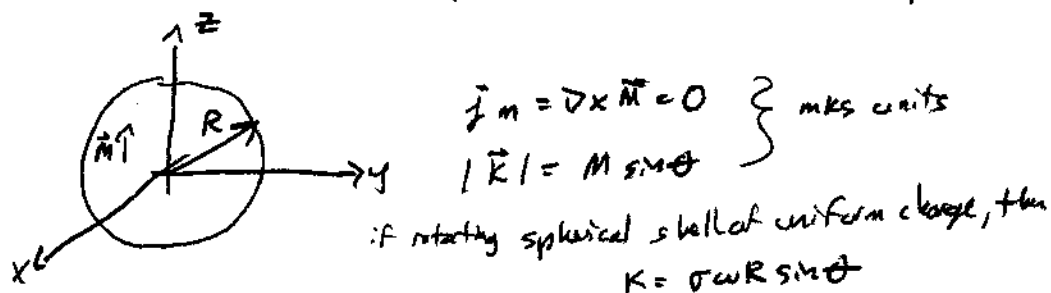 z
M⃗↑ R
y
x
j⃗ m = ∇ x M⃗ = 0 } mks units
|K⃗| = M sinθ
if rotating spherical shell of uniform charge, then
K = σωR sinθ